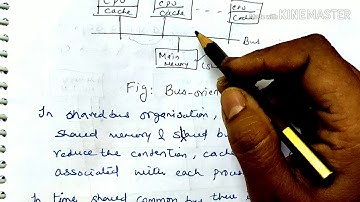 CPU CPU CPU
Cache Cache Cache
Made with KINEMASTER
Bus
Main
Memory
Fig: Bus-orien
In shared bus organisation,
shared memory & shared bu
reduce the contention, cach
associated with each proce
In time shared common bus there